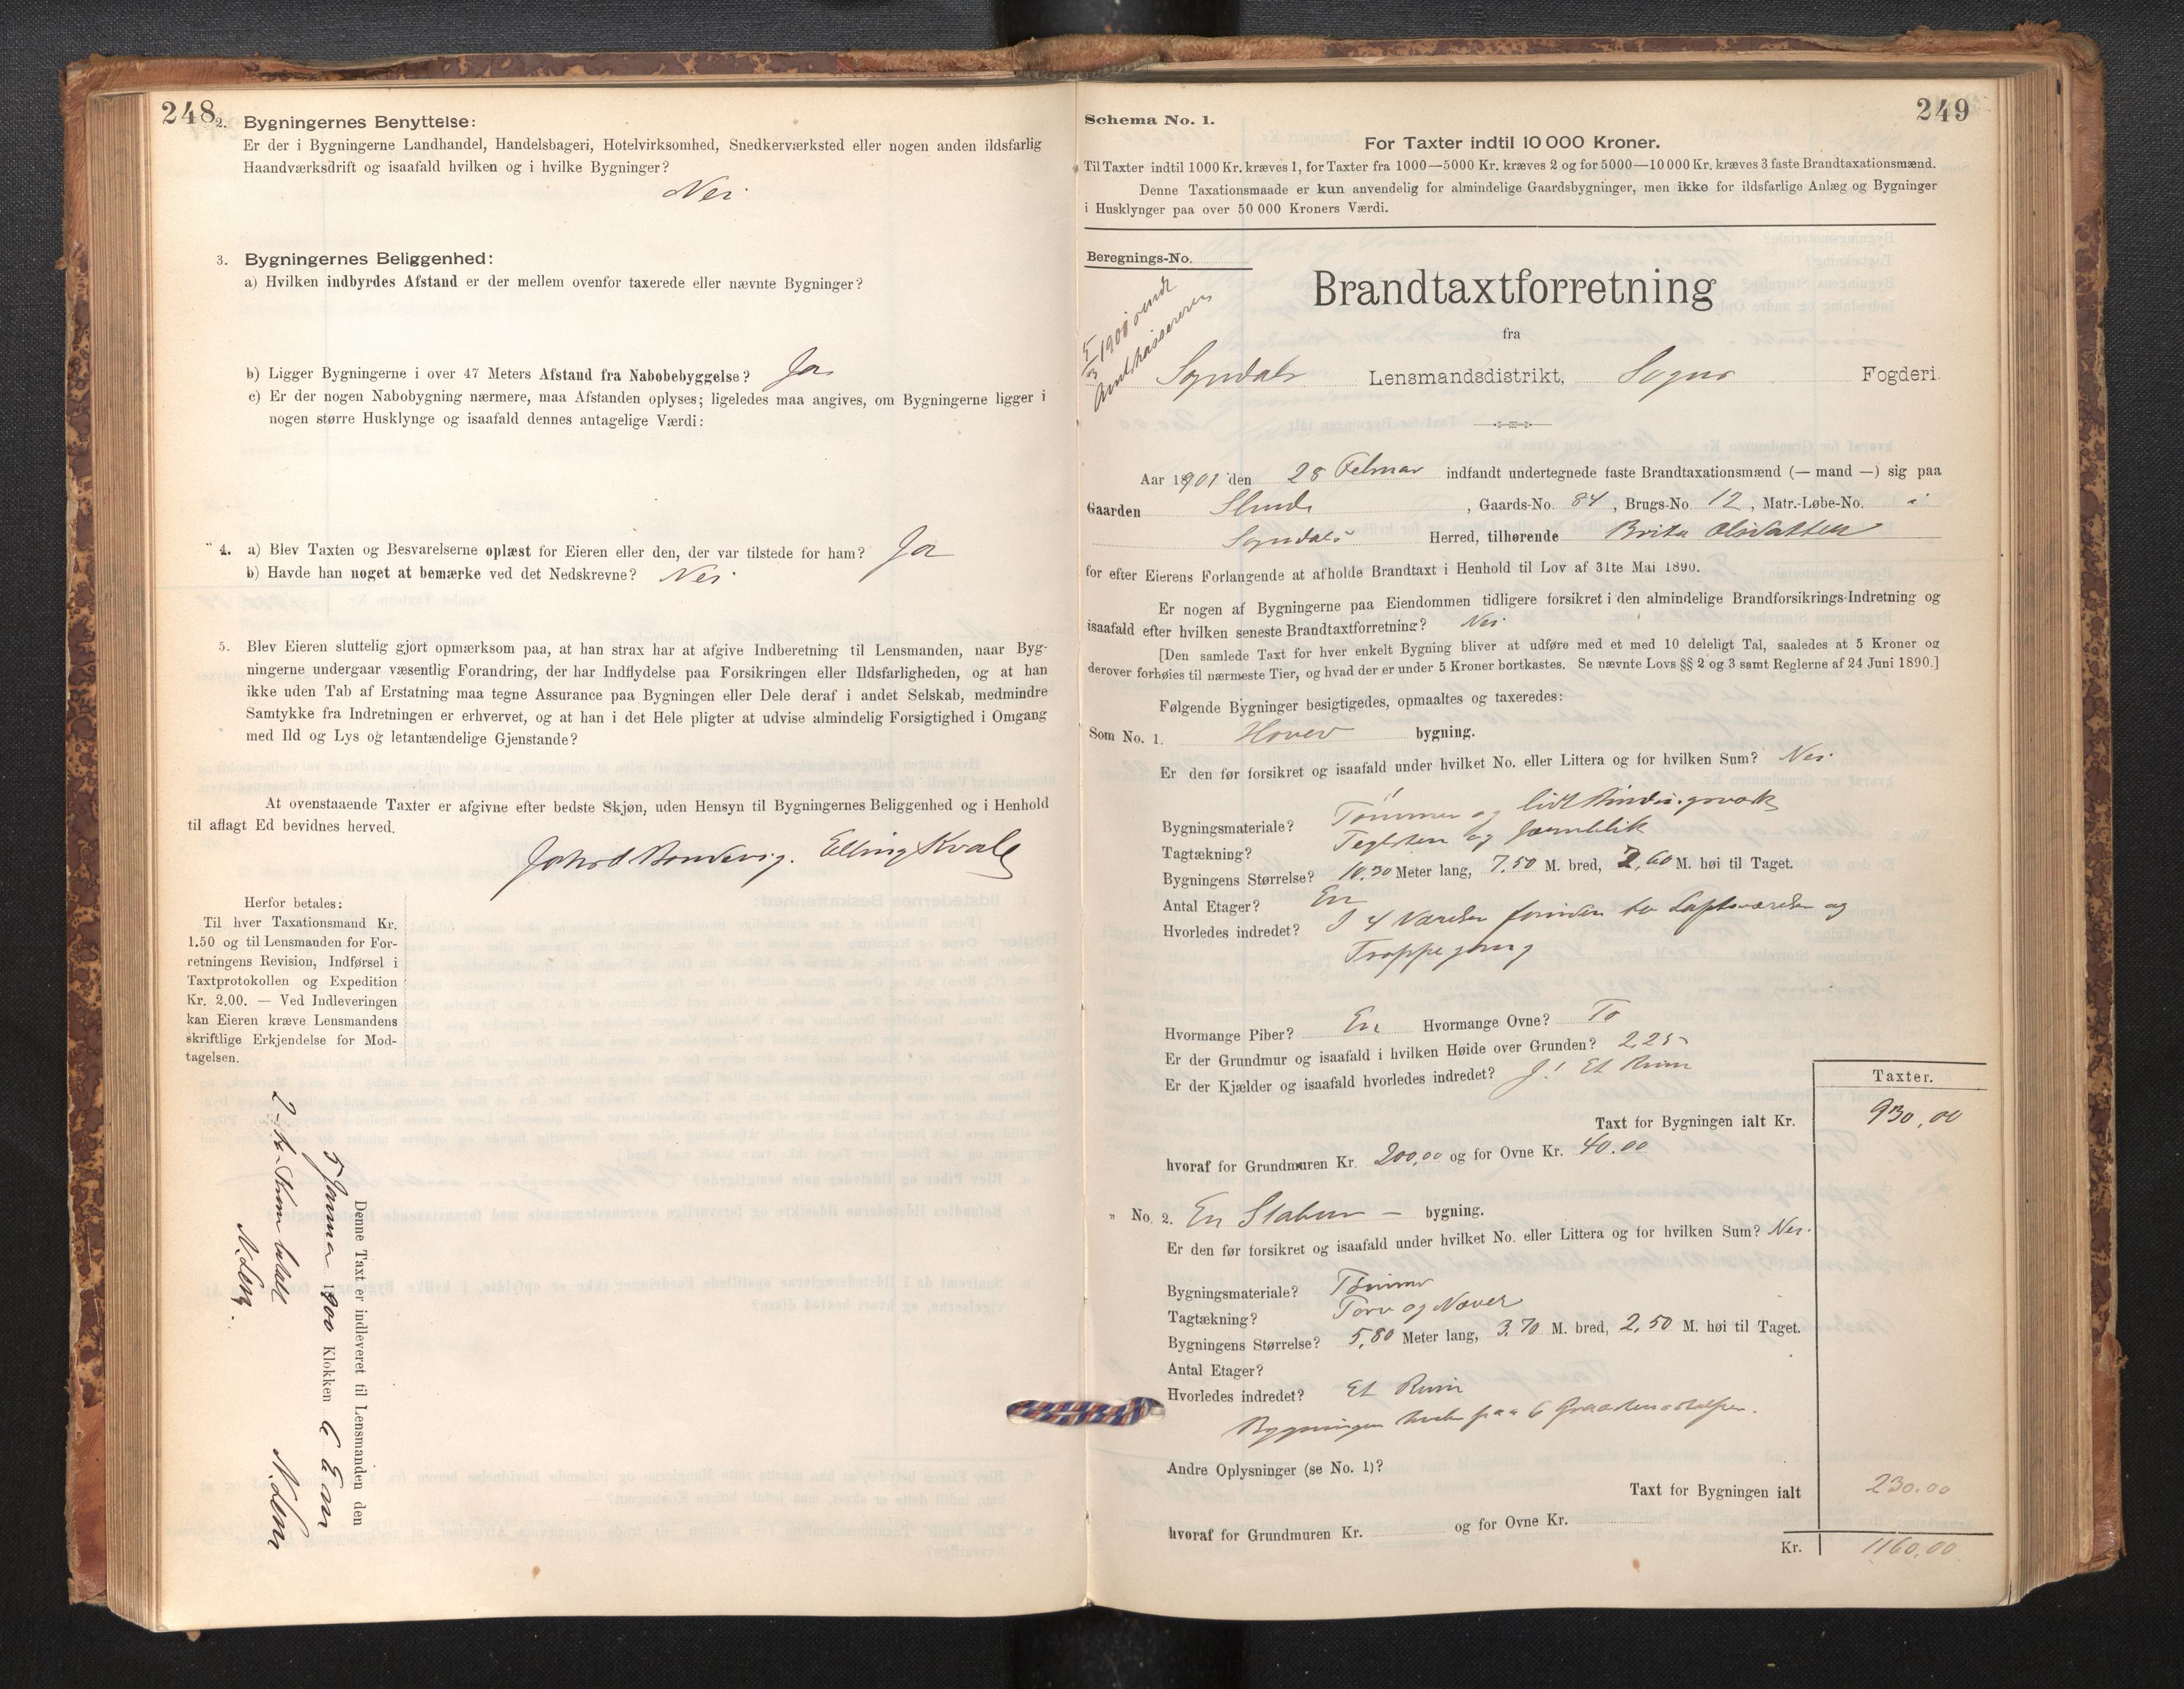 248
2. Bygningernes Benyttelse:
Er der i Bygningerne Landhandel, Handelsbageri, Hotelvirksomhed, Snedkerværksted eller nogen anden ildsfarlig
Haandværksdrift og isaafald hvilken og i hvilke Bygninger?
Nei
3. Bygningernes Beliggenhed:
a) Hvilken indbyrdes Afstand er der mellem ovenfor taxerede eller nævnte Bygninger?
b) Ligger Bygningerne i over 47 Meters Afstand fra Nabobebyggelse? Ja
c) Er der nogen Nabobygning nærmere, maa Afstanden oplyses; ligeledes maa angives, om Bygningerne ligger i
nogen større Husklynge og isaafald dennes antagelige Værdi:
4. a) Blev Taxten og Besvarelserne oplæst for Eieren eller den, der var tilstede for ham? Ja
b) Havde han noget at bemærke ved det Nedskrevne? Nei
5. Blev Eieren sluttelig gjort opmærksom paa, at han strax har at afgive Indberetning til Lensmanden, naar Byg-
ningerne undergaar væsentlig Forandring, der har Indflydelse paa Forsikringen eller Ildsfarligheden, og at han
ikke uden Tab af Erstatning maa tegne Assurance paa Bygningen eller Dele deraf i andet Selskab, medmindre
Samtykke fra Indretningen er erhvervet, og at han i det Hele pligter at udvise almindelig Forsigtighed i Omgang
med Ild og Lys og letantændelige Gjenstande?
At ovenstaaende Taxter er afgivne efter bedste Skjøn, uden Hensyn til Bygningernes Beliggenhed og i Henhold
til aflagt Ed bevidnes herved.
Elling Kvale
Herfor betales:
Til hver Taxationsmand Kr.
1.50 og til Lensmanden for For-
retningens Revision, Indførsel i
Taxtprotokollen og Expedition
Kr. 2.00. — Ved Indleveringen
kan Eieren kræve Lensmandens
skriftlige Erkjendelse for Mod-
tagelsen.
Denne Taxt er indleveret til Lensmanden den
5 Januar 1900 Klokken 6 Em
N. Lem
N. Lem.
249
Schema No. 1.
For Taxter indtil 10 000 Kroner.
Til Taxter indtil 1000 Kr. kræves 1, for Taxter fra 1000—5000 Kr. kræves 2 og for 5000—10 000 Kr. kræves 3 faste Brandtaxationsmænd.
Denne Taxationsmaade er kun anvendelig for almindelige Gaardsbygninger, men ikke for ildsfarlige Anlæg og Bygninger
i Husklynger paa over 50 000 Kroners Værdi.
Beregnings-No.
5/3 1900 sendt
Amtskassereren
Brandtaxtforretning
fra
Sogndals Lensmandsdistrikt, Sogns Fogderi
Aar 1901 den 28 Februar indfandt undertegnede faste Brandtaxationsmænd (— mand —) sig paa
Gaarden , Gaards-No. 84, Brugs-No. 12, Matr.-Løbe-No. i
Sogndals Herred, tilhørende Brita Olsdatter
for efter Eierens Forlangende at afholde Brandtaxt i Henhold til Lov af 31te Mai 1890.
Er nogen af Bygningerne paa Eiendommen tidligere forsikret i den almindelige Brandforsikrings-Indretning og
isaafald efter hvilken seneste Brandtaxtforretning? Nei
[Den samlede Taxt for hver enkelt Bygning bliver at udføre med et med 10 deleligt Tal, saaledes at 5 Kroner og
derover forhøies til nærmeste Tier, og hvad der er under 5 Kroner bortkastes. Se nævnte Lovs §§ 2 og 3 samt Reglerne af 24 Juni 1890.]
Følgende Bygninger besigtigedes, opmaaltes og taxeredes:
Som No. 1. Hoved bygning.
Er den før forsikret og isaafald under hvilket No. eller Littera og for hvilken Sum? Nei
Bygningsmateriale? Tømmer og lidt Bindingsværk
Tagtækning? Teglsten og Jernblik
Bygningens Størrelse? 10.30 Meter lang, 7,50 M. bred, 2,60 M. høi til Taget.
Antal Etager? En
Hvorledes indredet? I 4 Værelser foruden to Loftsværelser og
Trappegang
Hvormange Piber? En Hvormange Ovne? To
Er der Grundmur og isaafald i hvilken Høide over Grunden? 2,25
Er der Kjælder og isaafald hvorledes indredet? Ja! Et Rum
Taxter.
Taxt for Bygningen ialt Kr. 930,00
hvoraf for Grundmuren Kr. 200,00 og for Ovne Kr. 40.00
" No. 2. En Stabur — bygning.
Er den før forsikret og isaafald under hvilket No. eller Littera og for hvilken Sum? Nei.
Bygningsmateriale? Tømmer
Tagtækning? Torv og Næver
Bygningens Størrelse? 5,80 Meter lang, 3.70 M. bred, 2,50 M. høi til Taget.
Antal Etager?
Hvorledes indredet? Et Rum
Bygningen hviler paa 6 Graastensstolper.
Andre Oplysninger (se No. 1)?
Taxt for Bygningen ialt 230.00
hvoraf for Grundmuren Kr. og for Ovne Kr.
Kr. 1160,00